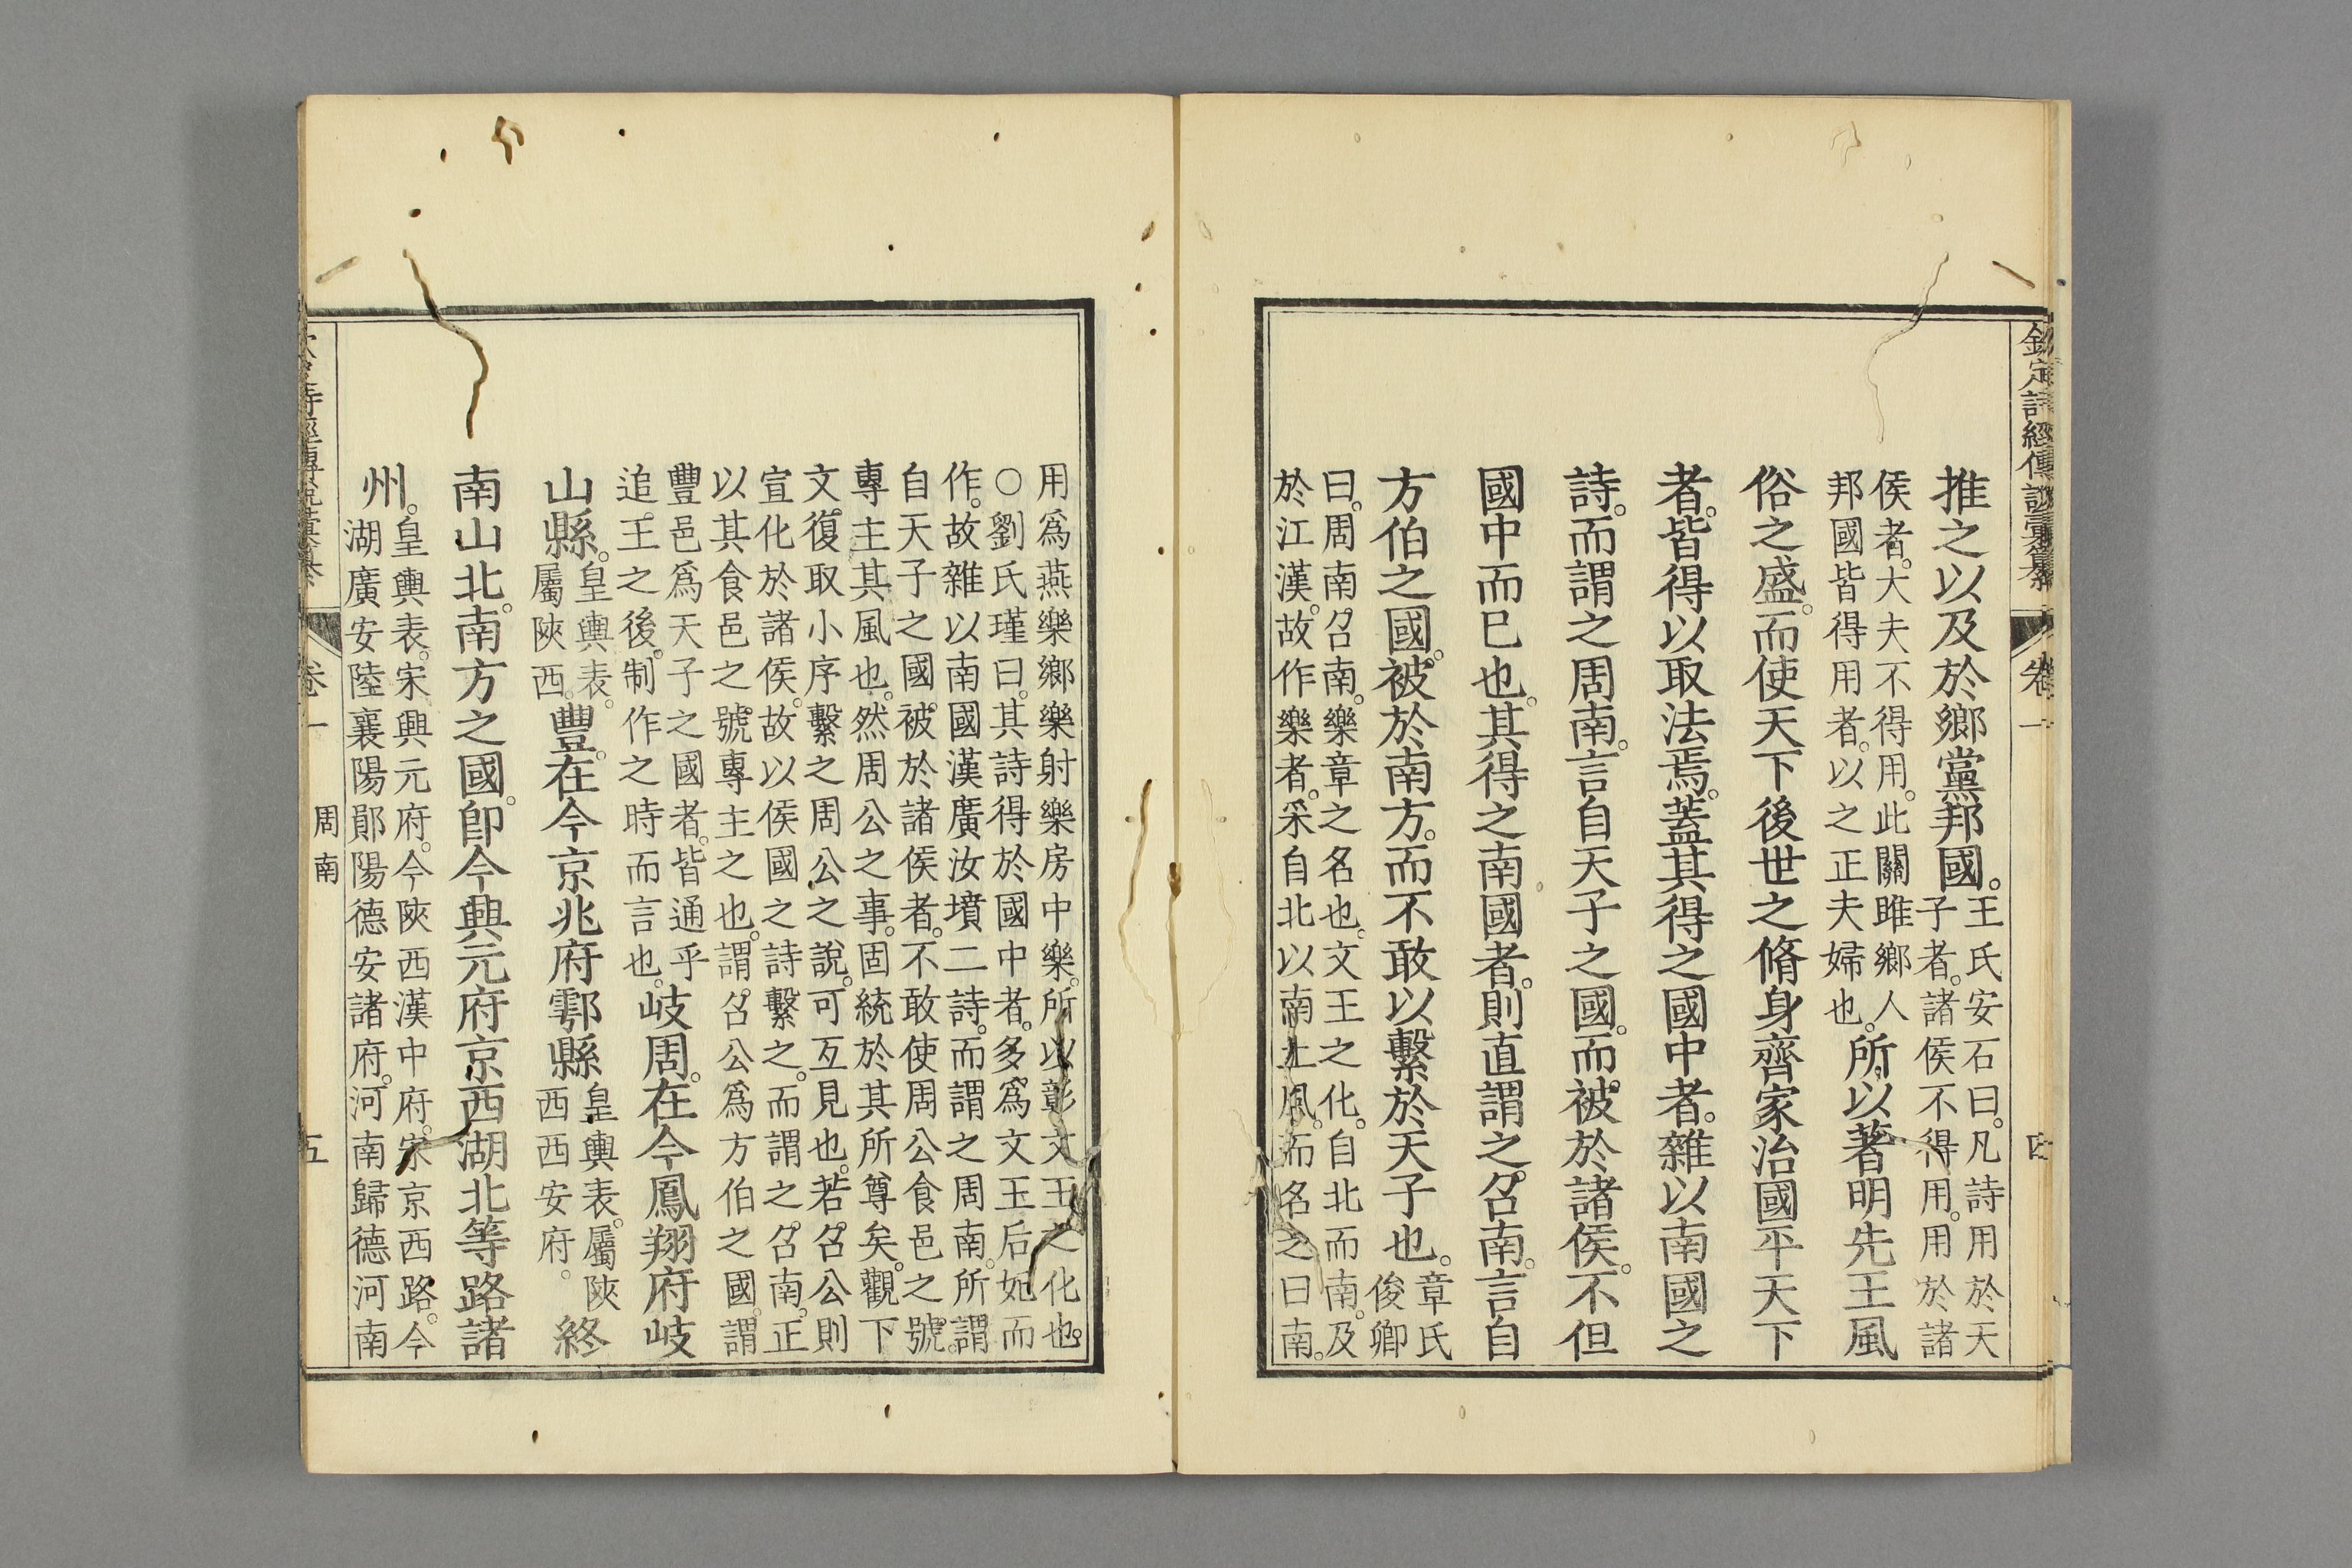 欽定詩經傳說彙纂 卷一
推之以及於鄉黨邦國。王氏安石曰。凡詩用於天
子者。諸侯不得用。用於諸
侯者。大夫不得用。此關雎鄉人
邦國皆得用者。以之正夫婦也。所以著明先王風
俗之盛。而使天下後世之脩身齊家治國平天下
者。皆得以取法焉。蓋其得之國中者。雜以南國之
詩。而謂之周南。言自天子之國。而被於諸侯。不但
國中而已也。其得之南國者。則直謂之召南。言自
方伯之國。被於南方。而不敢以繫於天子也。章氏
俊卿
曰。周南。召南。樂章之名也。文王之化。自北而南。及
於江漢。故作樂者。采自北以南土風。而名之曰南。
用爲燕樂鄉樂射樂房中樂。所以彰文王之化也。
○劉氏瑾曰。其詩得於國中者。多爲文王后妃而
作。故雜以南國漢廣汝墳二詩。而謂之周南。所謂
自天子之國。被於諸侯者。不敢使周公食邑之號。
專主其風也。然周公之事。固統於其所尊矣。觀下
文。復取小序繫之周公之說。可互見也。若召公則
宣化於諸侯。故以侯國之詩繫之。而謂之召南。正
以其食邑之號。專主之也。謂召公爲方伯之國。謂
豐邑爲天子之國者。皆通乎
追王之後。制作之時而言也。岐周。在今鳳翔府岐
山縣。皇輿表。
屬陝西。豐。在今京兆府鄠縣皇輿表。屬陝
西西安府。終
南山北。南方之國。卽今興元府京西湖北等路諸
州。皇輿表。宋興元府。今陝西漢中府。宋京西路。今
湖廣安陸襄陽鄖陽德安諸府。河南歸德河南
卷一 周南 五